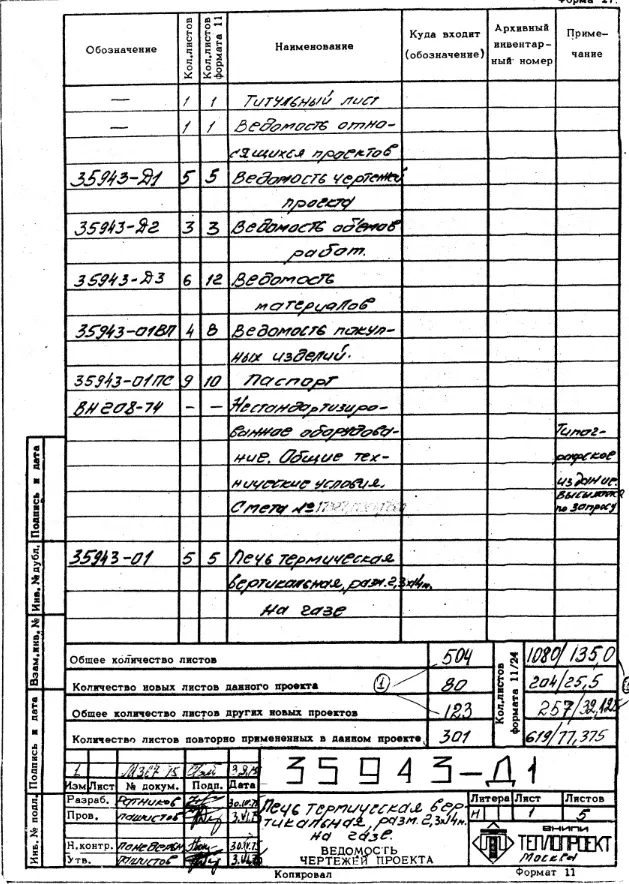 Форма 27.
Обозначение Кол.листов Кол.листов формата 11 Наименование Куда входит (обозначение) Архивный инвентарный номер Примечание
— 1 1 Титульный лист
— 1 1 Ведомость отно-
сящихся проектов
35943-Д1 5 5 Ведомость чертежей
проекта
35943-Д2 3 3 Ведомость объемов
работ.
35943-Д3 6 12 Ведомость
материалов
35943-01ВП 4 8 Ведомость покуп-
ных изделий.
35943-01ПС 9 10 Паспорт
ВН208-74 — — Нестандартизиро-
ванное оборудова- Типог-
ние. Общие тех- рафское
нические условия. издание.
Смета № Высылать по запросу
35943-01 5 5 Печь термическая
вертикальная, разм. 2,3х14м.
на газе
Общее количество листов 504 1080/135,0
Количество новых листов данного проекта 1 80 204/25,5
Общее количество листов других новых проектов 123 257/32,125
Количество листов повторно примененных в данном проекте 301 619/77,375
Кол.листов формата 11/24
Инв. № подл. Подпись и дата Взам.инв. № Инв. № дубл. Подпись и дата
1
Изм Лист № докум. Подп. Дата
35943-Д1
Разраб.
Пров.
Н.контр.
Утв.
Печь термическая вер-
тикальная, разм. 2,3х14м.
на газе.
ВЕДОМОСТЬ
ЧЕРТЕЖЕЙ ПРОЕКТА
Литера Лист Листов
И 1 5
ВНИПИ
ТЕПЛОПРОЕКТ
Москва
Копировал Формат 11